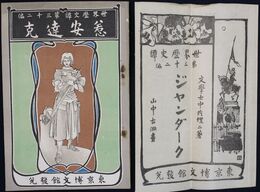 世界歴史譚第三十二編
惹安達克
東京博文館發兌
世界歴史譚
第三十二編
文學士中内
ジャンダーク
山中古洞畫
東京博文館發兌